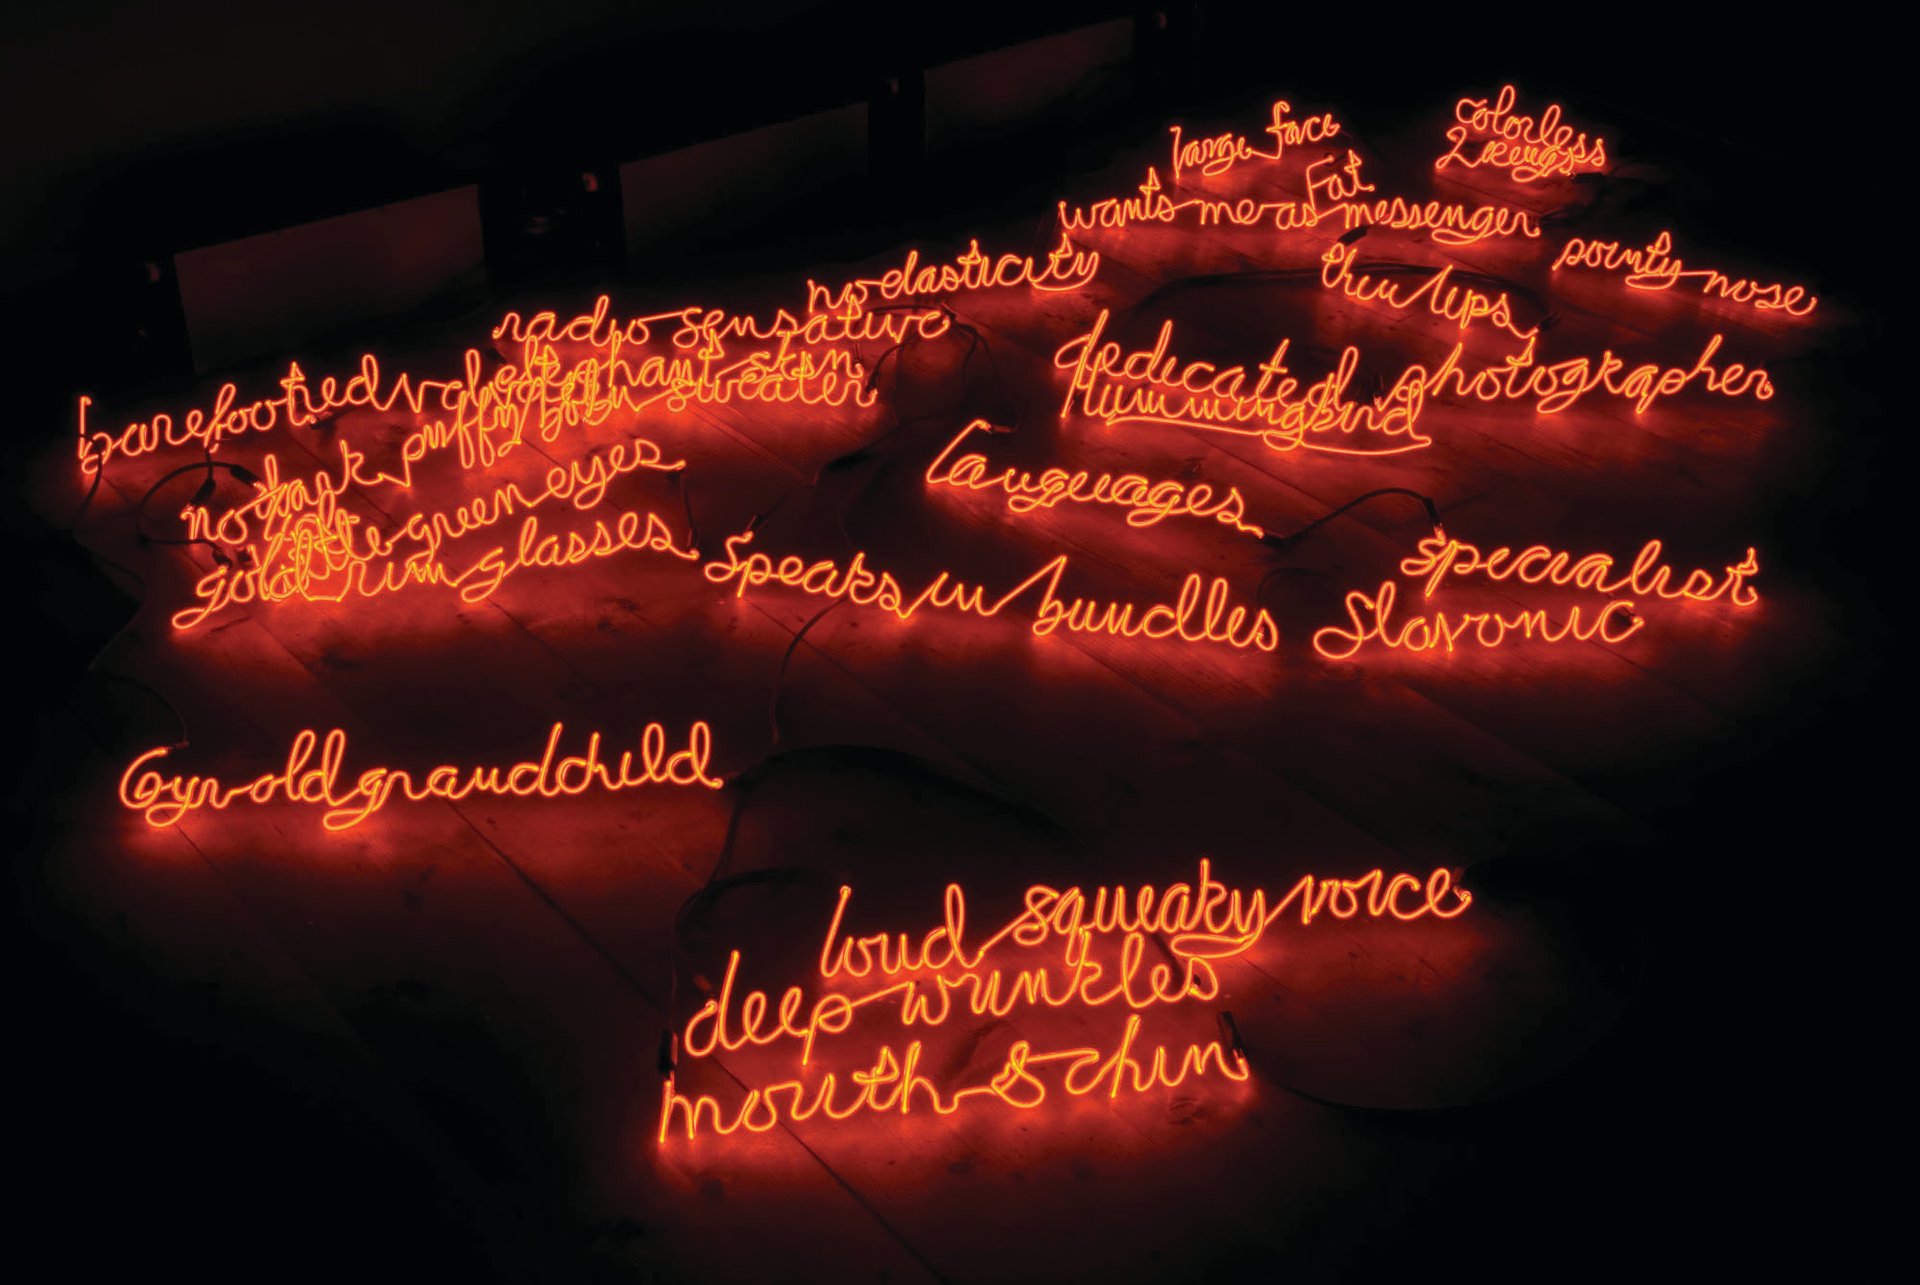 large face
colorless
Fat
wants me as messenger
pointy nose
no elasticity
thin lips
radio sensative
dedicated photographer
elephant skin
hummingbird
barefooted
puffy sweater
languages
no
green eyes
specialist
gold rim glasses
speaks in bundles
Slavonic
6yr old grandchild
loud squeaky voice
deep wrinkles
mouth & chin